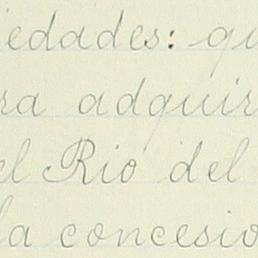 iedades: qu
ra adquir
el Rio del
la concesio